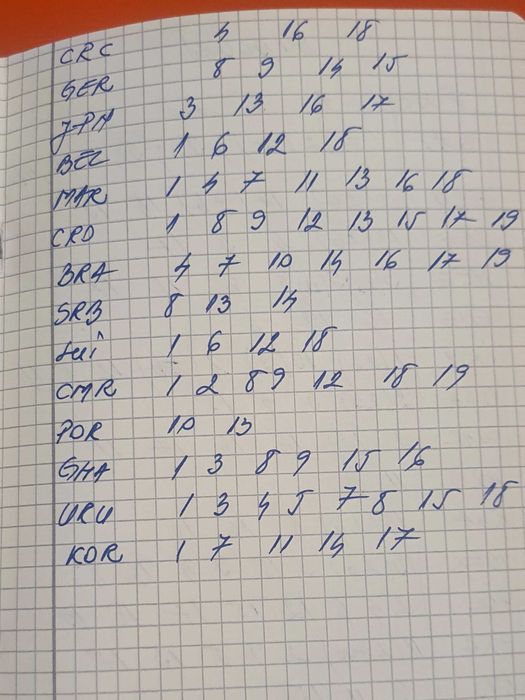 CRC 4 16 18
GER 8 9 14 15
JPN 3 13 16 17
BEL 1 6 12 18
MAR 1 4 7 11 13 16 18
CRO 1 8 9 12 13 15 17 19
BRA 4 7 10 14 16 17 19
SRB 8 13 14
Sui 1 6 12 18
CMR 1 2 8 9 12 18 19
POR 10 13
GHA 1 3 8 9 15 16
URU 1 3 4 5 7 8 15 18
KOR 1 7 11 14 17